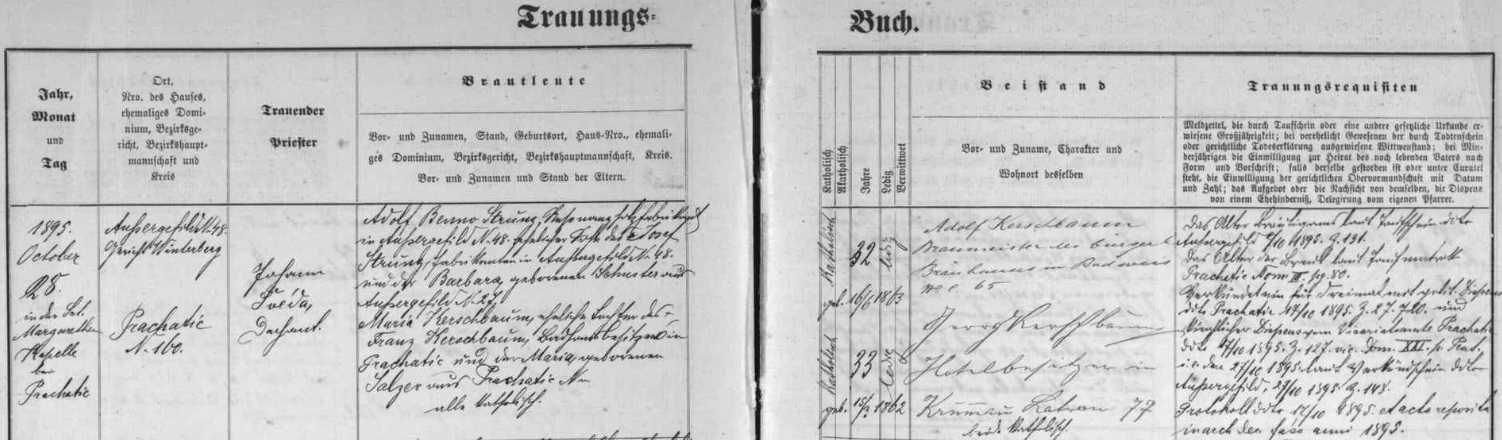 Trauungs-
Buch.
Jahr,
Monat
und
Tag
Ort,
Nro. des Hauses,
ehemaliges Domi-
nium, Bezirksge-
richt, Bezirkshaupt-
mannschaft und
Kreis
Trauender
Priester
Brautleute
Vor- und Zunamen, Stand, Geburtsort, Haus-Nro., ehemali-
ges Dominium, Bezirksgericht, Bezirkshauptmannschaft, Kreis.
Vor- und Zunamen und Stand der Eltern.
Katholisch
Akatholisch
Jahre
Ledig
Verwittwet
Beistand
Vor- und Zuname, Charakter und
Wohnort desselben
Trauungsrequisiten
Meldzettel, die durch Taufschein oder eine andere gesetzliche Urkunde er-
wiesene Großjährigkeit; bei verehelicht Gewesenen der durch Todtenschein
oder gerichtliche Todeserklärung ausgewiesene Wittwenstand; bei Min-
derjährigen die Einwilligung zur Heirat des noch lebenden Vaters nach
Form und Vorschrift; falls derselbe gestorben ist oder unter Curatel
steht, die Einwilligung der gerichtlichen Obervormundschaft mit Datum
und Zahl; das Aufgebot oder die Nachsicht von demselben, die Dispens
von einem Ehehinderniß, Delegirung vom eigenen Pfarrer.
1895.
October
28.
in der Set.
Margarethen
Kapelle
bei
Prachatic
Außergefild N. 48.
Gericht Winterberg
Prachatic
N. 160.
Johann
Švelda,
Dechant.
Adolf Benno Strunz,
in Außergefild N. 48. ehelicher Sohn des Josef
Strunz, Fabrikanten in Außergefild N. 48.
und der Barbara, geborenen Schuster aus
Außergefild N. 27.
Maria Kerschbaum, eheliche Tochter des
Franz Kerschbaum, Badhausbesitzers in
Prachatic und der Maria, geborenen
Salzer aus Prachatic N.
alle katholisch.
Katholisch
32
ledig
geb. 16/6 1863
Katholisch
33
ledig
geb. 15/2 1862
Adolf Kerschbaum
Braumeister des bürgerl.
Bräuhauses in Budweis
65
Georg Kerschbaum
Hotelbesitzer in
Krummau Latron 77
beide katholisch.
Das Alter Bräutigams laut Taufschein ddto
Außergefild 7/10 1895. Z. 131.
Das Alter der Braut laut Taufmatrik
Prachatic Tom III. pg. 80.
Verkündet für dreimal mit polit. Dispens
ddto Prachatic 17/10 1895. Z. und
kirchlicher Dispens vom Vicariatamte Prachatic
1895. Z. 127. vic. Dom. XXI. p. Pent.
in den 27/10 1895. laut Verkündschein ddto
Außergefild, 27/10 1895. Z. 148.
Protokoll ddto 12/10 1895. et acta reposita
in arch. dec. anni 1895.